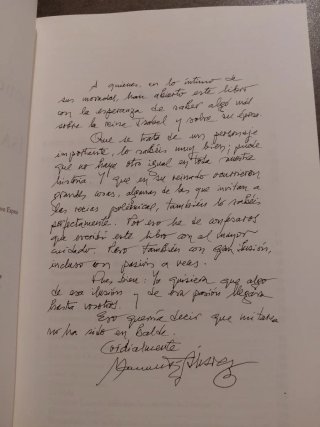 A quienes, en lo íntimo de
sus moradas, han abierto este libro
con la esperanza de saber algo más
sobre la reina Isabel y sobre su época.
Que se trata de un personaje
importante, lo sabéis muy bien; puede
que no haya otro igual en toda nuestra
historia. Y que en su reinado ocurrieron
grandes cosas, algunas de las que invitan a
las recias polémicas, también lo sabéis
perfectamente. Por eso he de confesaros
que escribí este libro con el mayor
cuidado. Pero también con gran ilusión,
incluso con pasión a veces.
Pues bien: Yo quisiera que algo
de esa ilusión y de esa pasión llegara
hasta vosotros.
Eso quería decir que mi tarea
no ha sido en Balde.
Cordialmente
Manuel Fz Álvarez